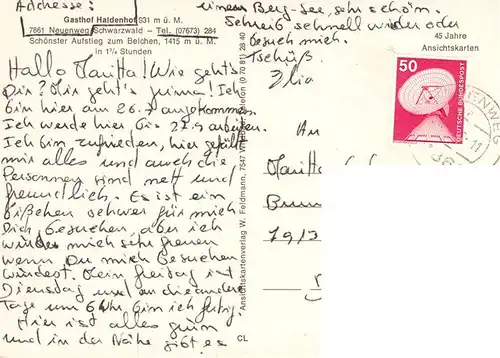 Addresse:
Gasthof Haldenhof 931 m ü. M.
7861 Neuenweg/Schwarzwald — Tel. (07673) 284
Schönster Aufstieg zum Belchen, 1415 m ü. M.
in 1¾ Stunden
Hallo Jaritta! Wie geht's
Dir? Mir geht's prima! Ich
bin hier am 26.7 angekommen.
Ich werde hier bis 27.9 arbeiten.
Ich bin zufrieden, hier gefällt
mir alles und auch die
Personnen sind nett und
freundlich. Es ist ein
bißchen schwer für mich
Dich besuchen, aber ich
würde mich sehr freuen
wenn Du mich besuchen
würdest. Mein freitag ist
Dienstag und an die andere
Tage um 6 Uhr bin ich fertig.
Hier ist alles grün
und in der Nähe gibt es
einen Berg-See, sehr schön.
Schreib schnell wieder oder
besuch mich.
Tschüß
Ilia
45 Jahre
Ansichtskarten
Ansichtskartenverlag W. Feldmann, 7547 Telefon (0 70 81) 28 40
CL
50
DEUTSCHE BUNDESPOST
An
Jaritta
Brunn
7913